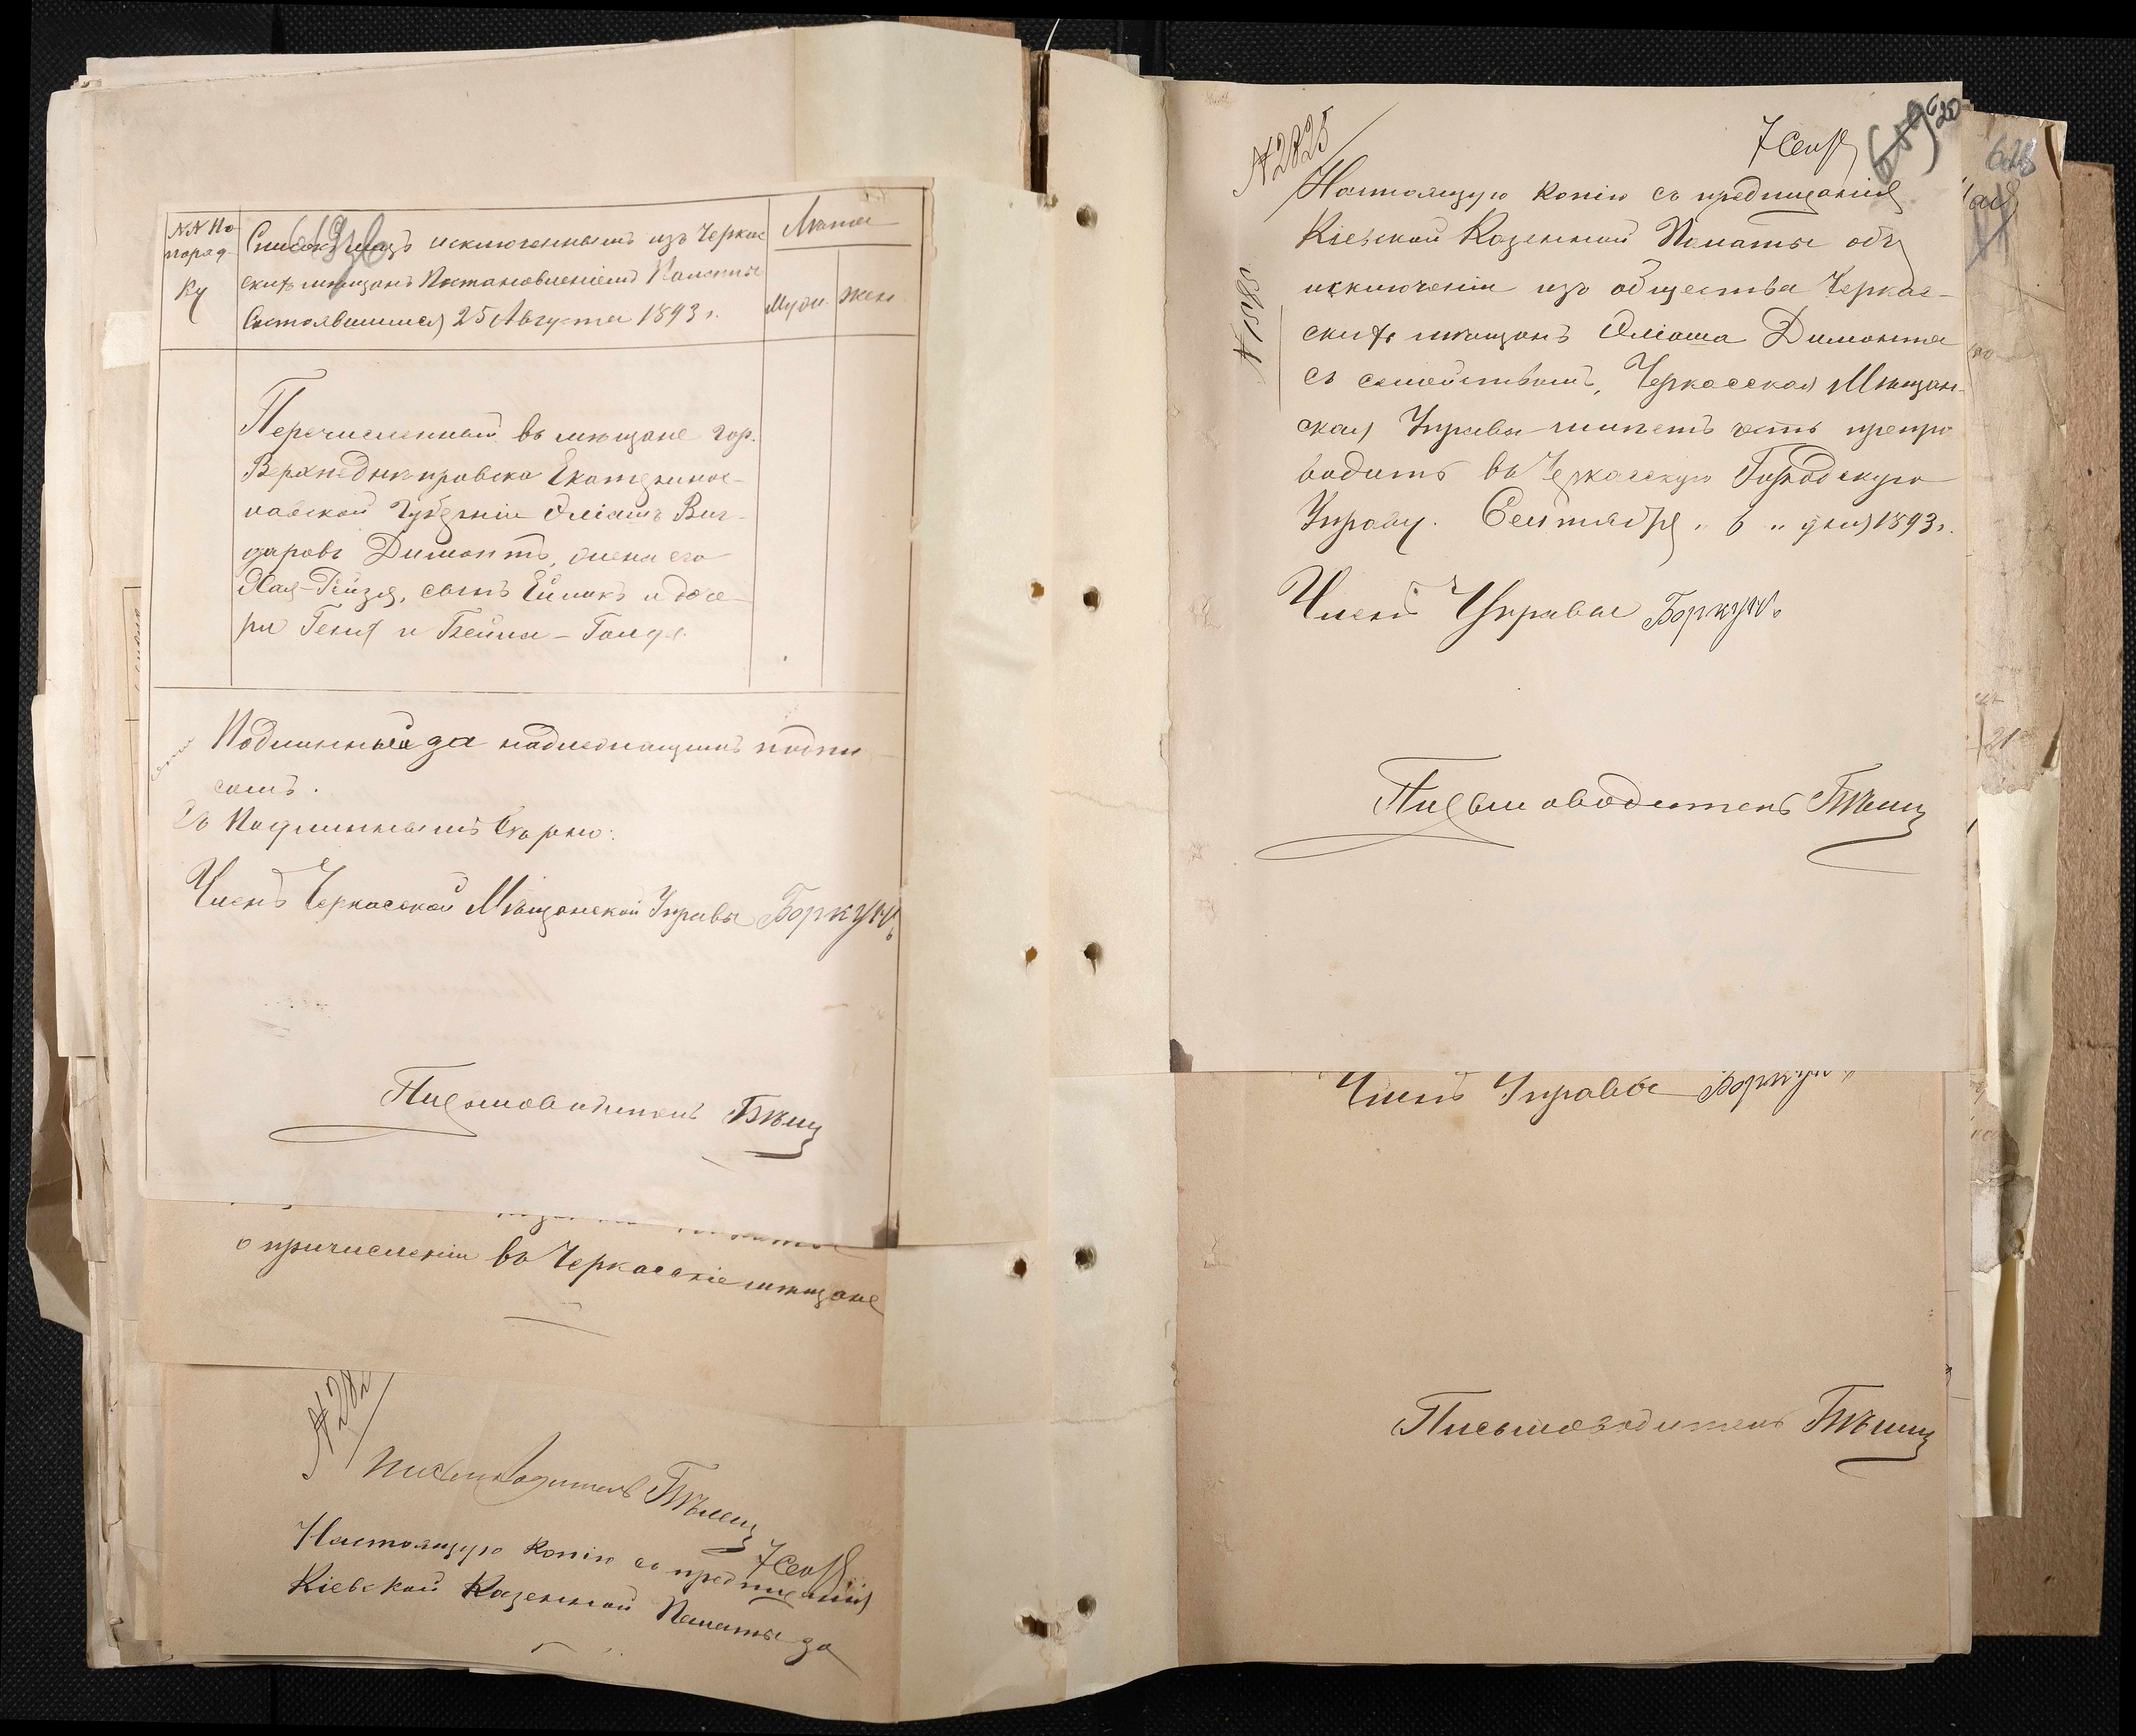 NN По
поряд-
ку
Списокъ лицъ исключеннымъ изъ Черкас
скихъ мѣщанъ Постановленіемъ Палаты
Состоявшимся 25 Августа 1893 г.
Лѣта
Муж.
Жен.
Перечисленный въ мѣщане гор.
Верхнеднѣпровска Екатеринос-
лавской Губерніи Эліашъ Виг-
доровъ Димонтъ, жена его
Хая-Рейзя, сынъ и доче-
ри Геня и Бейла-Голда.
Подлинный за надлежащимъ подпи
сомъ.
Съ Подлиннымъ Вѣрно:
Членъ Черкасской Мѣщанской Управы Боркунъ
Письмоводитель
о причисленіи въ Черкасскіе мѣщане
N 282
Письмоводитель
7 Сент
Настоящую копію съ предписанія
Кіевской Казенной Палаты за
N 2825
7 Сент
620
Настоящую копію съ предписанія
Кіевской Казенной Палаты объ
исключеніи изъ общества Черкас-
скихъ мѣщанъ Эліаша Димонта
съ семействомъ, Черкасская Мѣщан-
ская Управа имѣетъ честь препро
водить въ Черкасскую Городскую
Управу. Сентября „ 6 „ дня 1893 г.
Членъ Управы Боркунъ
Письмоводитель
Членъ Управы Боркунъ
Письмоводитель